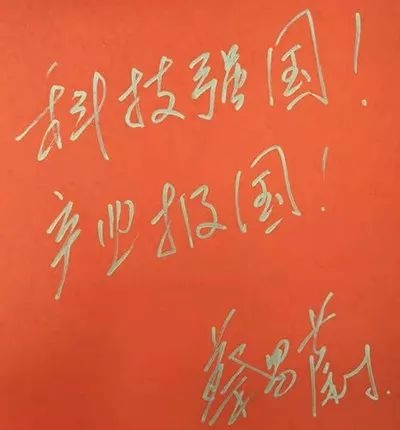 科技强国！
产业报国！
蔡昌蔚